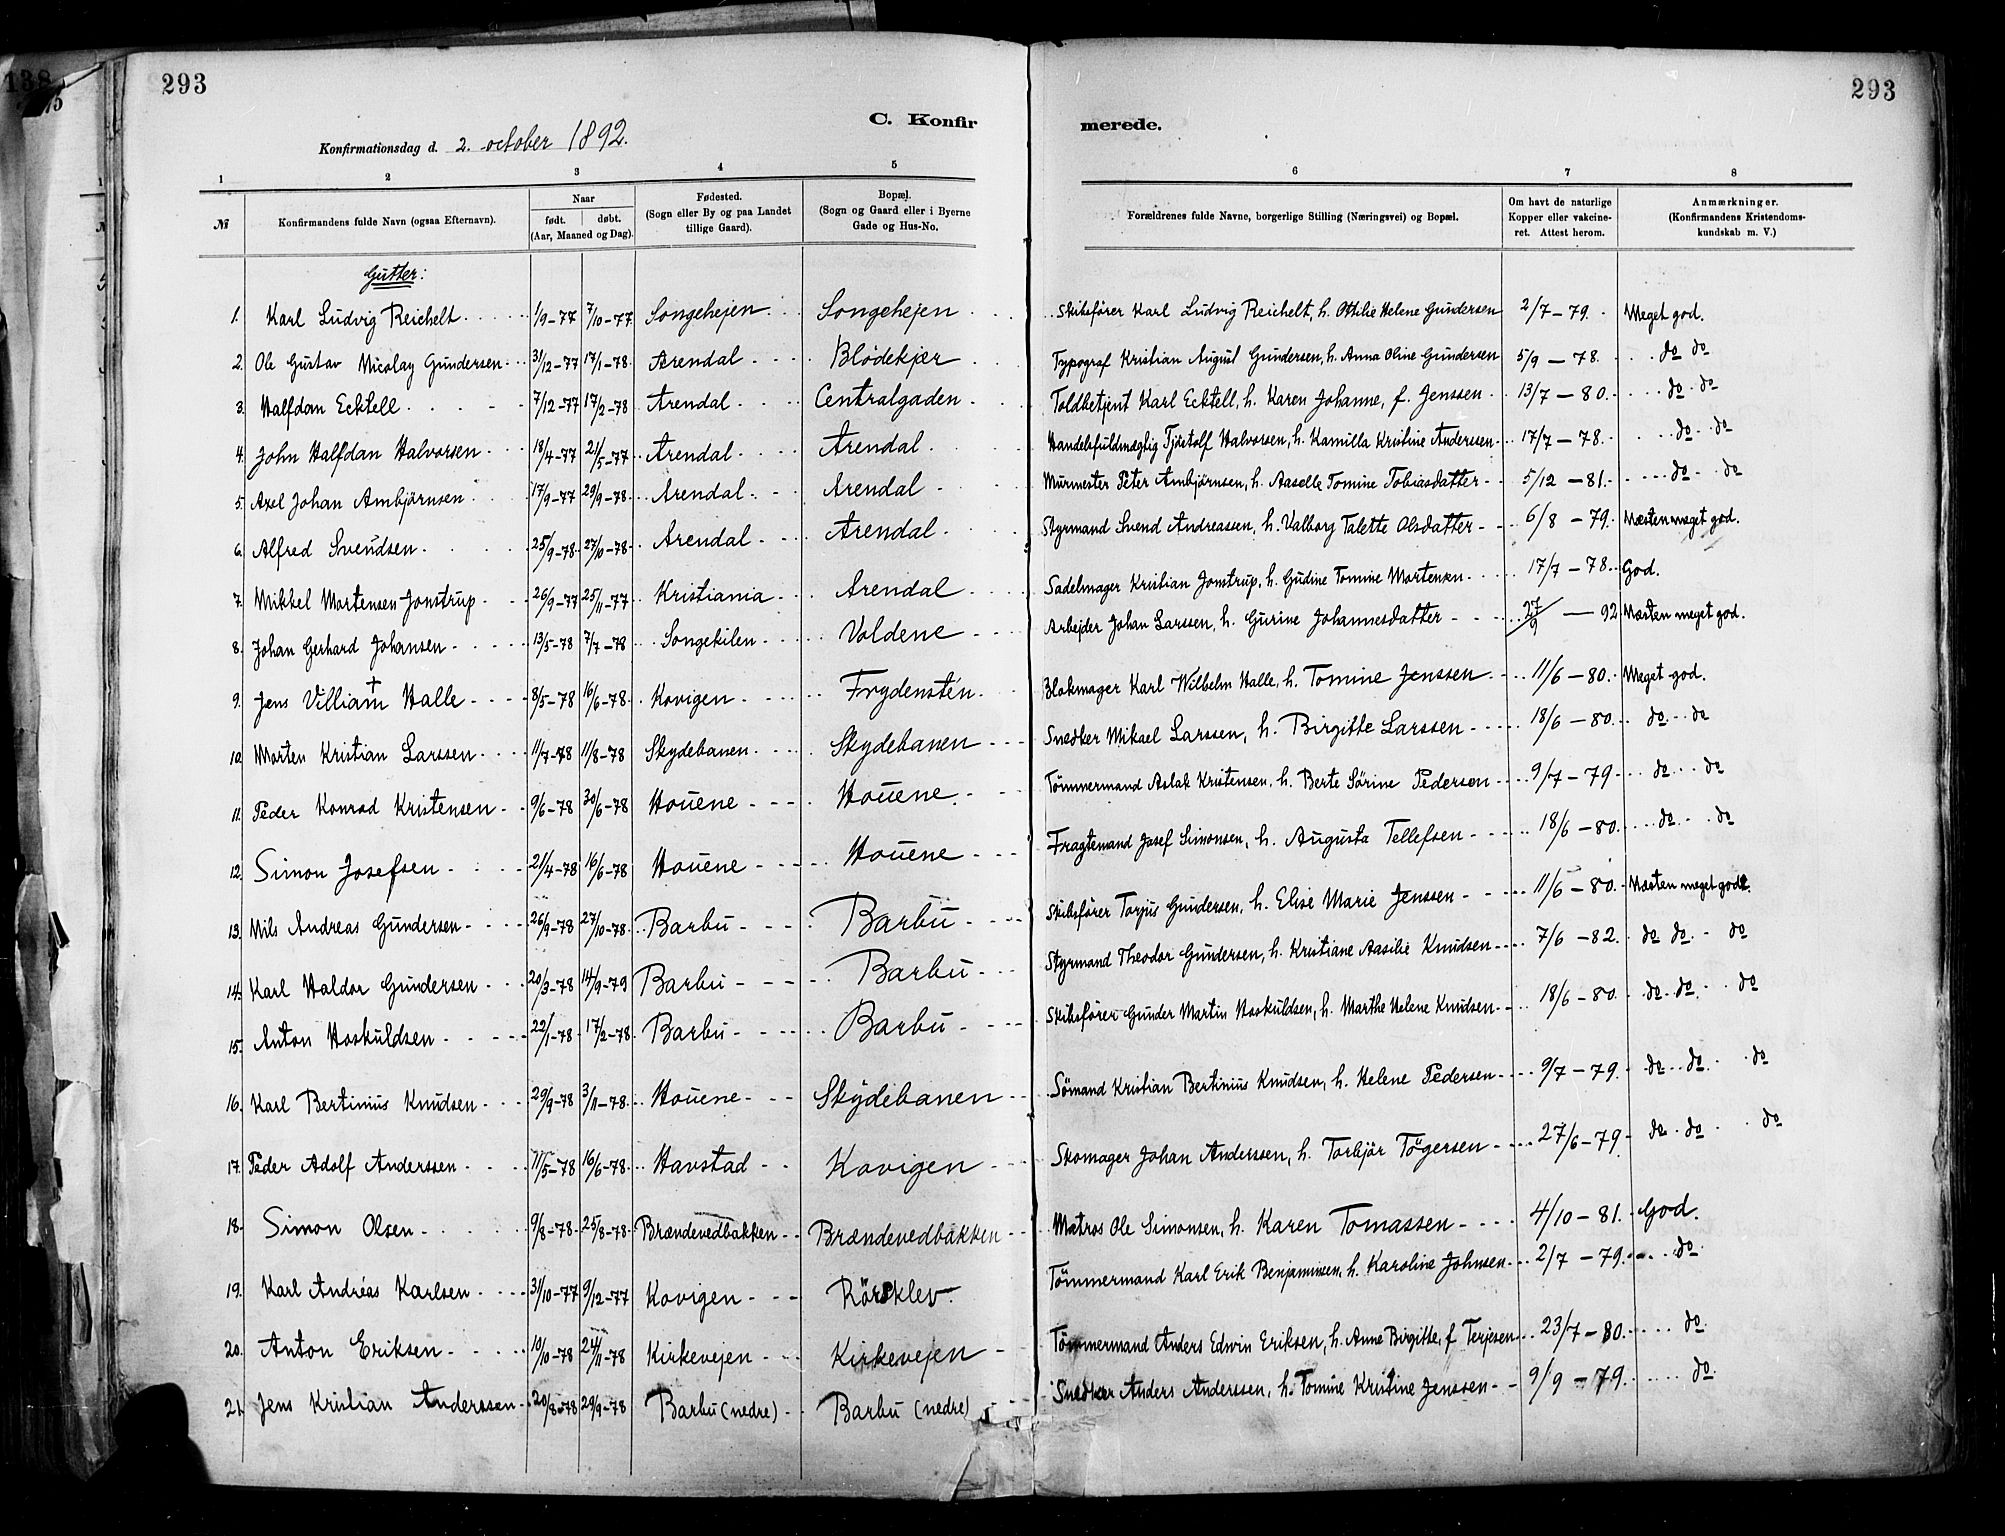 138
293
293
C. Konfir merede.
Konfirmationsdag d. 2. october 1892.
1 2 3 4 5 6 7 8
№ Konfirmandens fulde Navn (ogsaa Efternavn). Naar født. døbt. (Aar, Maaned og Dag). Fødested. (Sogn eller By og paa Landet tillige Gaard). Bopæl. (Sogn og Gaard eller i Byerne Gade og Hus-No. Forældrenes fulde Navne, borgerlige Stilling (Næringsvei) og Bopæl. Om havt de naturlige Kopper eller vakcineret. Attest herom. Anmærkninger. (Konfirmandens Kristendomskundskab m. V.)
Gutter:
1. Karl Ludvig Reichelt 1/9-77 7/10-77 Songehejen Songehejen Skibsfører Karl Ludvig Reichelt, h. Ottilie Helene Gundersen 2/7-79. Meget god.
2. Ole Gustav Nicolay Gundersen 31/12-77 17/1-78. Arendal Blödekjer Typograf Kristian August Gundersen, h. Anna Oline Gundersen 5/9-78. do do
3. Halfdan Ecktell 7/12-77 17/2-78 Arendal Centralgaden Toldbetjent Karl Ecktell, h. Karen Johanne, f. Jenssen 13/7-80. do do
4. John Halfdan Halvorsen 18/4-77 21/5-77 Arendal Arendal Handelsfuldmægtig Tjöstolf Halvorsen, h. Kamilla Kristine Anderssen 17/7-78. do do
5. Axel Johan Ambjörnsen 17/9-77 29/9-78. Arendal Arendal Murmester Peter Ambjörnsen, h. Aaselle Tomine Tobiasdatter 5/12-81. do do
6. Alfred Svendsen 25/9-78. 27/10-78 Arendal Arendal Styrmand Svend Andreassen, h. Valborg Talette Olsdatter 6/8-79. Næsten meget god.
7. Mikkel Mortensen-Jonstrup 26/9-77 25/11-77 Kristiania Arendal Sadelmager Kristian Jonstrup, h. Gudine Tomine Mortensen 17/7-78. God.
8. Johan Gerhard Johansen 13/5-78 7/7-78 Songekilen Voldene Arbejder Johan Larssen, h. Gurine Johannesdatter 27/9-92 Næsten meget god.
9. Jens Villiam Halle 8/5-78 16/6-78. Kovigen Frydenstén Blokmager Karl Wilhelm Halle, h. Tomine Jenssen 11/6-80. Meget god.
10. Morten Kristian Larssen 11/7-78 11/8-78 Skydebanen Skydebanen Snedker Mikael Larssen, h. Birgitte Larssen 18/6-80. do do
11. Peder Konrad Kristensen 9/6-78 30/6-78 Houene Houene Tömmermand Aslak Kristensen, h. Berte Sörine Pedersen 9/7-79 do do
12. Simon Josefsen 21/4-78 16/6-78 Houene Houene Fragtemand Josef Simonsen, h. Augusta Tellefsen 18/6-80. do do
13. Nils Andreas Gundersen 26/9-78 27/10-78 Barbu Barbu Skibsfører Torjus Gundersen, h. Elise Marie Jenssen 11/6-80. Næsten meget god.
14. Karl Haldor Gundersen 20/3-78 14/9-79 Barbu Barbu Styrmand Theodor Gundersen, h. Kristiane Aasilie Knudsen 7/6-82. do do do
15. Anton Hoskuldsen 22/1-78 17/2-78. Barbu Barbu Skibsfører Gunder Martin Hoskuldsen, h. Marthe Helene Knudsen 18/6-80. do do do
16. Karl Bertinius Knudsen 29/9-78 3/11-78. Houene Skydebanen Sömand Kristian Bertinius Knudsen, h. Helene Pedersen 9/7-79. do do do
17. Peder Adolf Anderssen 11/5-78 16/6-78 Havstad Kovigen Skomager Johan Anderssen, h. Torbjör Tögersen 27/6-79. do do do
18. Simon Olsen 9/8-78. 25/8-78. Brændevedbakken Brændevedbakken Matros Ole Simonsen, h. Karen Tomassen 4/10-81. God.
19. Karl Andréas Karlsen 31/10-77 9/12-77 Kovigen Rörklev. Tömmermand Karl Erik Benjaminsen, h. Karoline Johnsen 2/7-79. do
20. Anton Eriksen 10/10-78 24/11-78 Kirkevejen Kirkevejen Tömmermand Anders Edwin Eriksen, h. Anne Birgitte, f. Terjesen 23/7-80. do
21. Jens Kristian Anderssen 20/8-78 29/9-78 Barbu (nedre) Barbu (nedre) Snedker Anders Anderssen, h. Tomine Kristine Jenssen 9/9-79. do